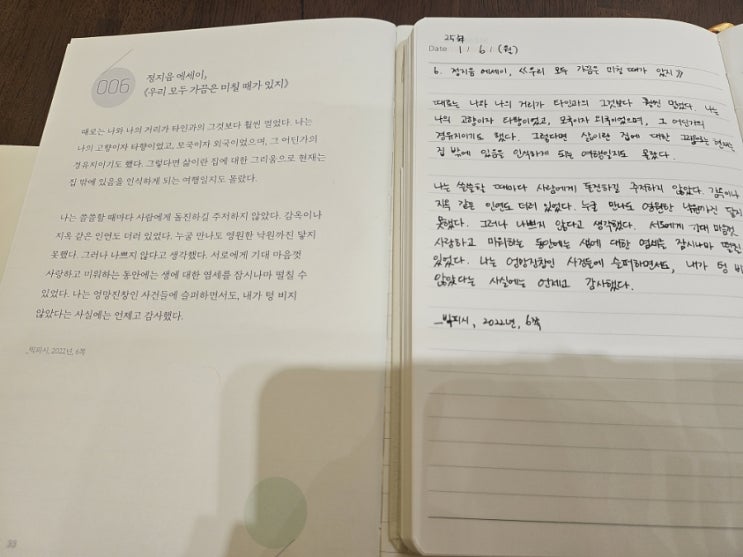 006
정지음 에세이,
《우리 모두 가끔은 미칠 때가 있지》
때로는 나와 나의 거리가 타인과의 그것보다 훨씬 멀었다. 나는
나의 고향이자 타향이었고, 모국이자 외국이었으며, 그 어딘가의
경유지이기도 했다. 그렇다면 삶이란 집에 대한 그리움으로 현재는
집 밖에 있음을 인식하게 되는 여행일지도 몰랐다.
나는 쓸쓸할 때마다 사람에게 돌진하길 주저하지 않았다. 감옥이나
지옥 같은 인연도 더러 있었다. 누굴 만나도 영원한 낙원까진 닿지
못했다. 그러나 나쁘지 않다고 생각했다. 서로에게 기대 마음껏
사랑하고 미워하는 동안에는 생에 대한 염세를 잠시나마 떨칠 수
있었다. 나는 엉망진창인 사건들에 슬퍼하면서도, 내가 텅 비지
않았다는 사실에는 언제고 감사했다.
_빅피시, 2022년, 6쪽
25년
Date 1 / 6 / (월)
6. 정지음 에세이, 《우리 모두 가끔은 미칠 때가 있지》
때로는 나와 나의 거리가 타인과의 그것보다 훨씬 멀었다. 나는
나의 고향이자 타향이었고, 모국이자 외국이었으며, 그 어딘가의
경유지이기도 했다. 그렇다면 삶이란 집에 대한 그리움으로 현재는
집 밖에 있음을 인식하게 되는 여행일지도 몰랐다.
나는 쓸쓸할 때마다 사람에게 돌진하길 주저하지 않았다. 감옥이나
지옥 같은 인연도 더러 있었다. 누굴 만나도 영원한 낙원까진 닿지
못했다. 그러나 나쁘지 않다고 생각했다. 서로에게 기대 마음껏
사랑하고 미워하는 동안에는 생에 대한 염세를 잠시나마 떨친
있었다. 나는 엉망진창인 사건들에 슬퍼하면서도, 내가 텅 비
않았다는 사실에는 언제고 감사했다.
_빅피시, 2022년, 6쪽